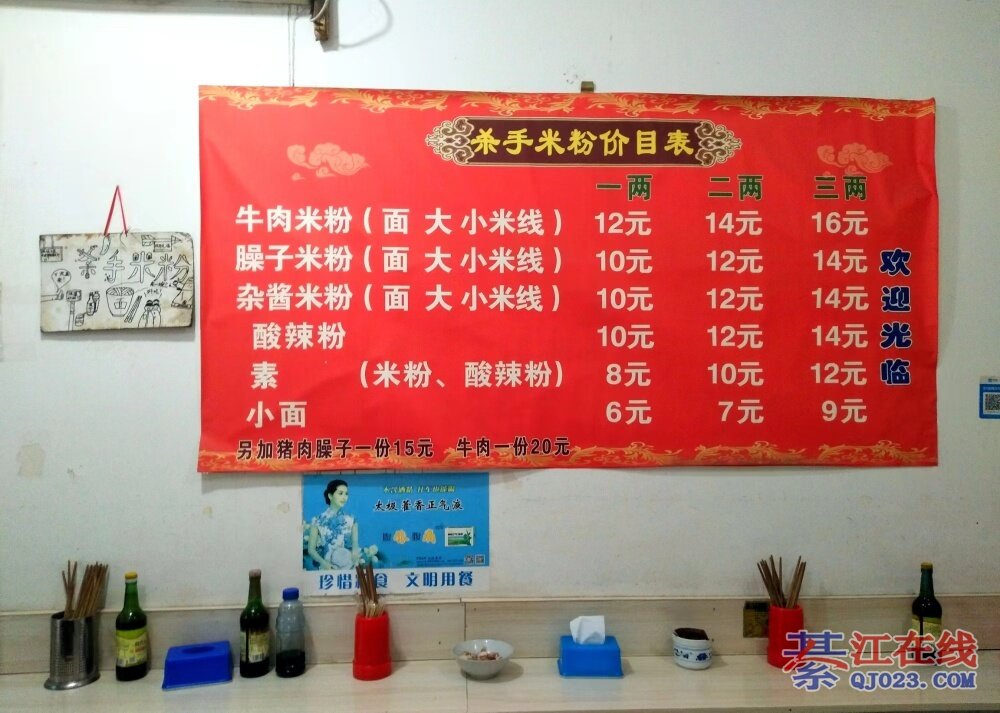 杀手米粉价目表
一两 二两 三两
牛肉米粉(面 大 小米线) 12元 14元 16元
臊子米粉(面 大 小米线) 10元 12元 14元
杂酱米粉(面 大 小米线) 10元 12元 14元
酸辣粉 10元 12元 14元
素 (米粉、酸辣粉) 8元 10元 12元
小面 6元 7元 9元
另加猪肉臊子一份15元 牛肉一份20元
欢迎光临
杀手米粉
太极藿香正气液
珍惜粮食 文明用餐
綦江在线
QJ023.COM